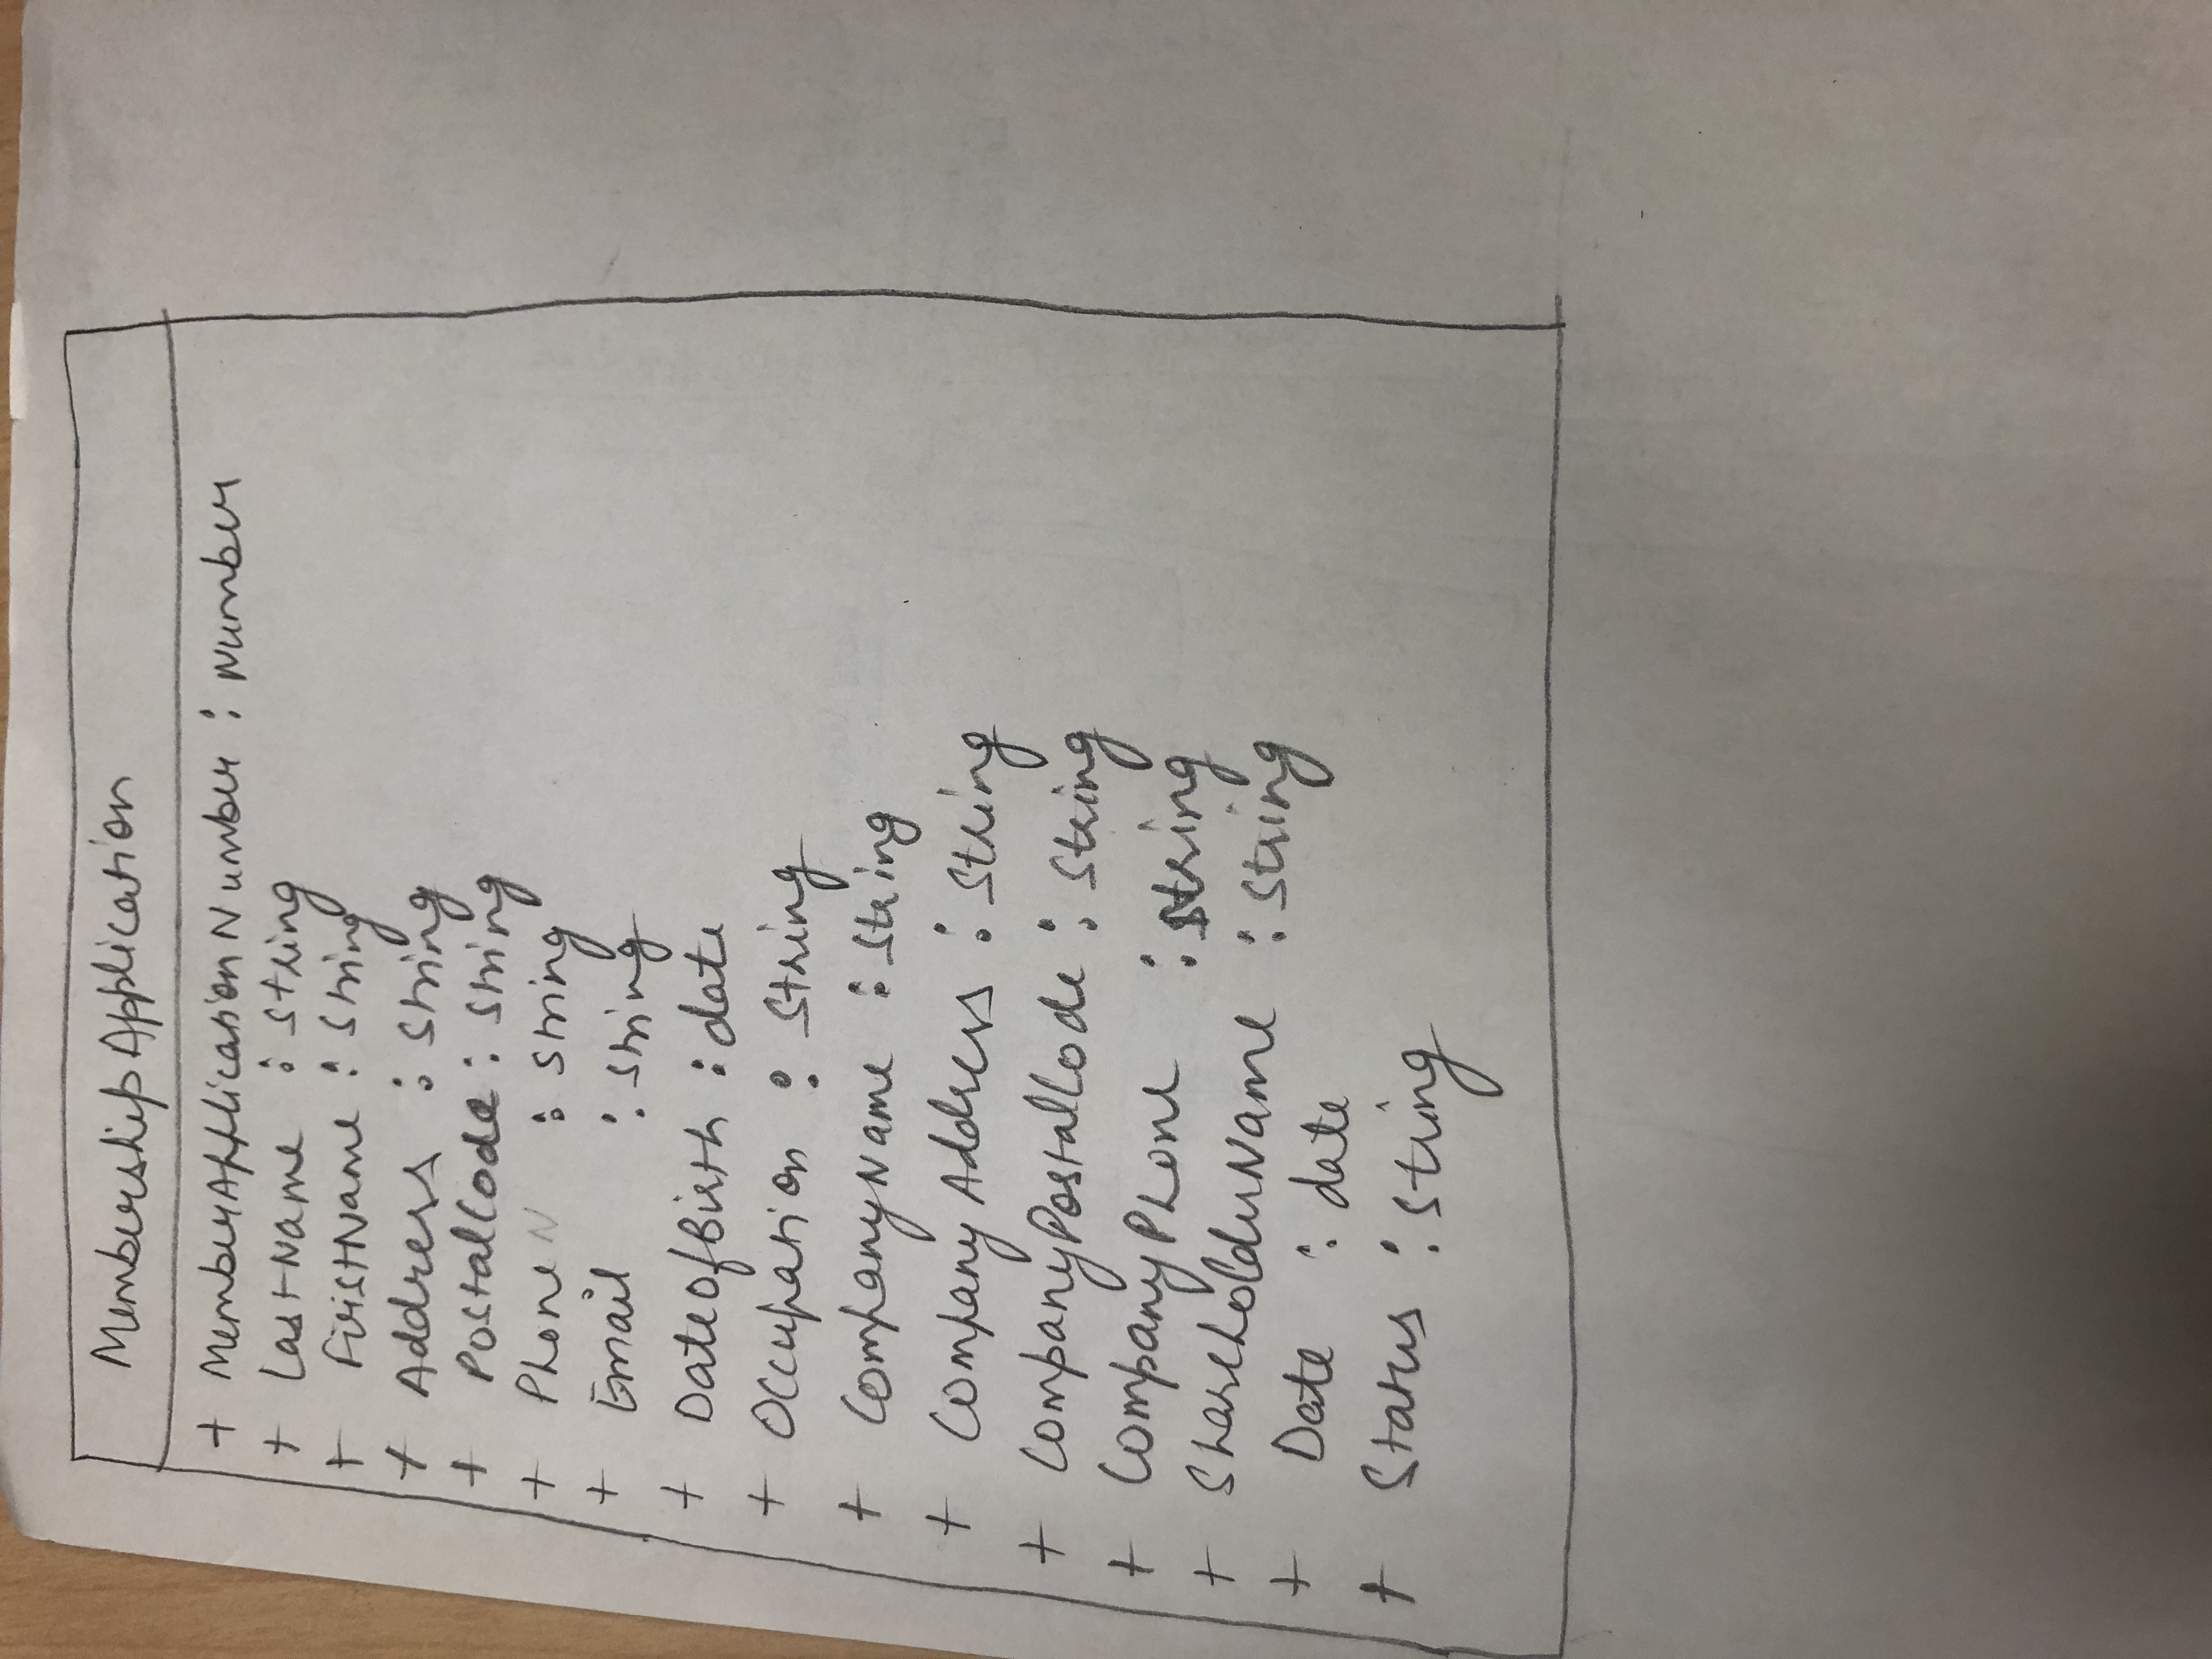 MembershipApplication
+ MemberApplicationNumber : Number
+ LastName : String
+ FirstName : String
+ Address : String
+ PostalCode : String
+ Phone N : String
+ Email : String
+ DateOfBirth : date
+ Occupation : String
+ CompanyName : String
+ CompanyAddress : String
+ CompanyPostalCode : String
+ CompanyPhone : String
+ ShareholderName : String
+ Date : date
+ Status : String